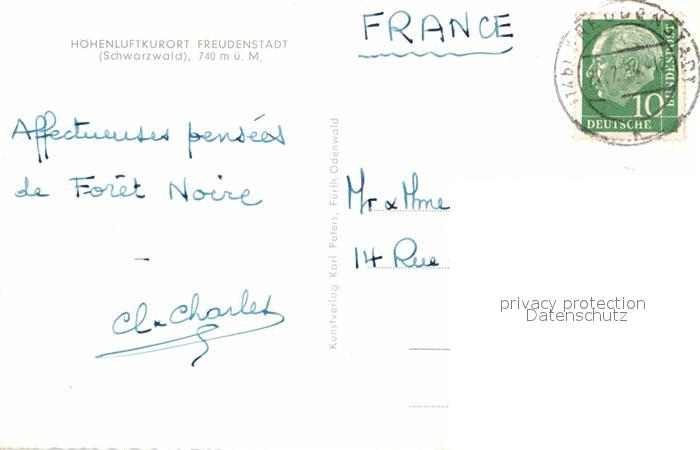 HÖHENLUFTKURORT FREUDENSTADT
(Schwarzwald), 740 m ü. M.
Affectueuses pensées
de Forêt Noire
-
Kunstverlag Karl Peters, Fürth Odenwald
FRANCE
DEUTSCHE
BUNDESPOST
10
Mr & Mme
14 Rue
privacy protection
Datenschutz